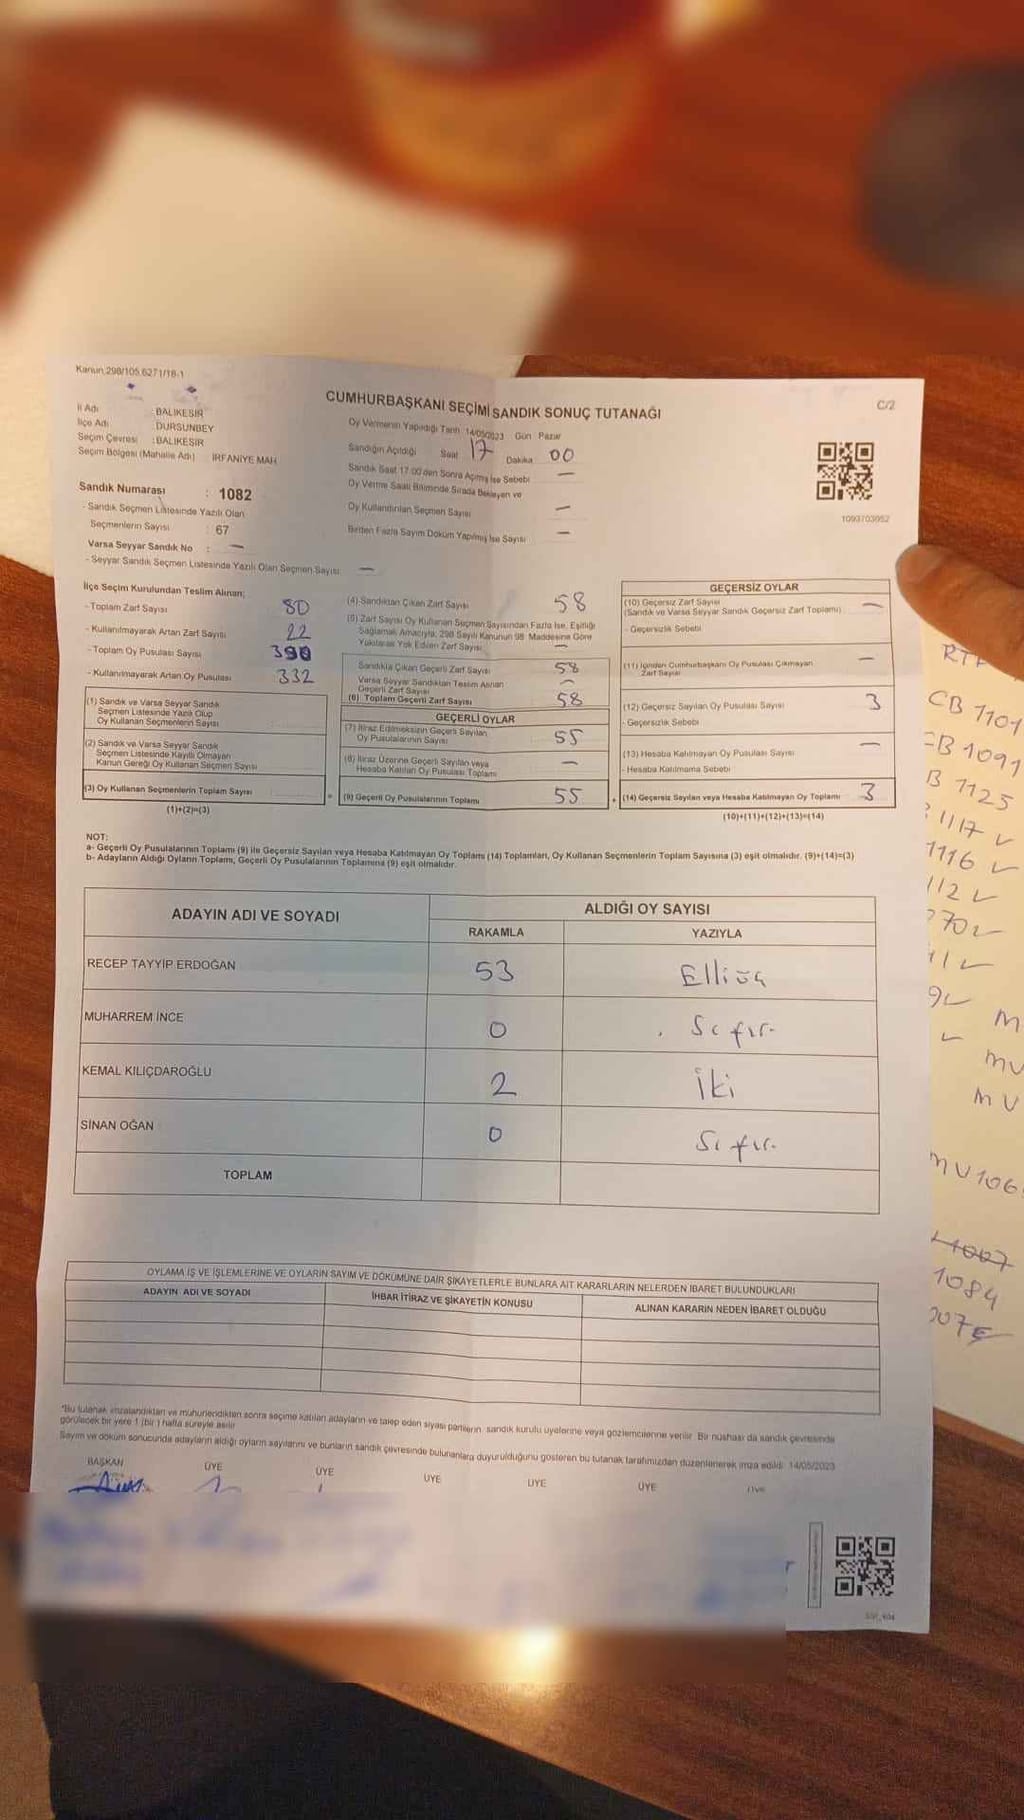 Kanun,298/105,6271/18-1
CUMHURBAŞKANI SEÇİMİ SANDIK SONUÇ TUTANAĞI
C/2
İl Adı : BALIKESİR
İlçe Adı : DURSUNBEY
Seçim Çevresi : BALIKESİR
Seçim Bölgesi (Mahalle Adı) : İRFANİYE MAH
Oy Vermenin Yapıldığı Tarih 14/05/2023 Gün Pazar
Sandığın Açıldığı Saat 17 Dakika 00
Sandık Saat 17:00'den Sonra Açılmış İse Sebebi —
Oy Verme Saati Bitiminde Sırada Bekleyen ve
Oy Kullandırılan Seçmen Sayısı —
Birden Fazla Sayım Döküm Yapılmış İse Sayısı —
1093703952
Sandık Numarası : 1082
- Sandık Seçmen Listesinde Yazılı Olan
Seçmenlerin Sayısı : 67
Varsa Seyyar Sandık No : —
- Seyyar Sandık Seçmen Listesinde Yazılı Olan Seçmen Sayısı —
İlçe Seçim Kurulundan Teslim Alınan;
- Toplam Zarf Sayısı 80
- Kullanılmayarak Artan Zarf Sayısı 22
- Toplam Oy Pusulası Sayısı 390
- Kullanılmayarak Artan Oy Pusulası 332
(1) Sandık ve Varsa Seyyar Sandık
Seçmen Listesinde Yazılı Olup
Oy Kullanan Seçmenlerin Sayısı
(2) Sandık ve Varsa Seyyar Sandık
Seçmen Listesinde Kayıtlı Olmayan
Kanun Gereği Oy Kullanan Seçmen Sayısı
(3) Oy Kullanan Seçmenlerin Toplam Sayısı
(1)+(2)=(3)
(4) Sandıktan Çıkan Zarf Sayısı 58
(5) Zarf Sayısı Oy Kullanan Seçmen Sayısından Fazla İse, Eşitliği
Sağlamak Amacıyla, 298 Sayılı Kanunun 98. Maddesine Göre
Yakılarak Yok Edilen Zarf Sayısı —
Sandıkta Çıkan Geçerli Zarf Sayısı 58
Varsa Seyyar Sandıktan Teslim Alınan
Geçerli Zarf Sayısı —
(6) Toplam Geçerli Zarf Sayısı 58
GEÇERLİ OYLAR
(7) İtiraz Edilmeksizin Geçerli Sayılan
Oy Pusulalarının Sayısı 55
(8) İtiraz Üzerine Geçerli Sayılan veya
Hesaba Katılan Oy Pusulası Toplamı —
= (9) Geçerli Oy Pusulalarının Toplamı 55
GEÇERSİZ OYLAR
(10) Geçersiz Zarf Sayısı
(Sandık ve Varsa Seyyar Sandık Geçersiz Zarf Toplamı) —
- Geçersizlik Sebebi
(11) İçinden Cumhurbaşkanı Oy Pusulası Çıkmayan
Zarf Sayısı —
(12) Geçersiz Sayılan Oy Pusulası Sayısı 3
- Geçersizlik Sebebi
(13) Hesaba Katılmayan Oy Pusulası Sayısı —
- Hesaba Katılmama Sebebi
+ (14) Geçersiz Sayılan veya Hesaba Katılmayan Oy Toplamı 3
(10)+(11)+(12)+(13)=(14)
NOT:
a- Geçerli Oy Pusulalarının Toplamı (9) ile Geçersiz Sayılan veya Hesaba Katılmayan Oy Toplamı (14) Toplamları, Oy Kullanan Seçmenlerin Toplam Sayısına (3) eşit olmalıdır. (9)+(14)=(3)
b- Adayların Aldığı Oyların Toplamı, Geçerli Oy Pusulalarının Toplamına (9) eşit olmalıdır.
ADAYIN ADI VE SOYADI
ALDIĞI OY SAYISI
RAKAMLA YAZIYLA
RECEP TAYYİP ERDOĞAN 53 Elliüç
MUHARREM İNCE 0 Sıfır
KEMAL KILIÇDAROĞLU 2 İki
SİNAN OĞAN 0 Sıfır
TOPLAM
OYLAMA İŞ VE İŞLEMLERİNE VE OYLARIN SAYIM VE DÖKÜMÜNE DAİR ŞİKAYETLERLE BUNLARA AİT KARARLARIN NELERDEN İBARET BULUNDUKLARI
ADAYIN ADI VE SOYADI
İHBAR İTİRAZ VE ŞİKAYETİN KONUSU
ALINAN KARARIN NEDEN İBARET OLDUĞU
*Bu tutanak imzalandıktan ve mühürlendikten sonra seçime katılan adayların ve talep eden siyasi partilerin sandık kurulu üyelerine veya gözlemcilerine verilir. Bir nüshası da sandık çevresinde
görülecek bir yere 1 (bir) hafta süreyle asılır
Sayım ve döküm sonucunda adayların aldığı oyların sayılarını ve bunların sandık çevresinde bulunanlara duyurulduğunu gösteren bu tutanak tarafımızdan düzenlenerek imza edildi. 14/05/2023
BAŞKAN ÜYE ÜYE ÜYE ÜYE ÜYE
CB 1101
CB 1091
1125
1117 ✓
1116 ✓
112 ✓
70 ✓
9 ✓
MU
MU
MU 106
1084